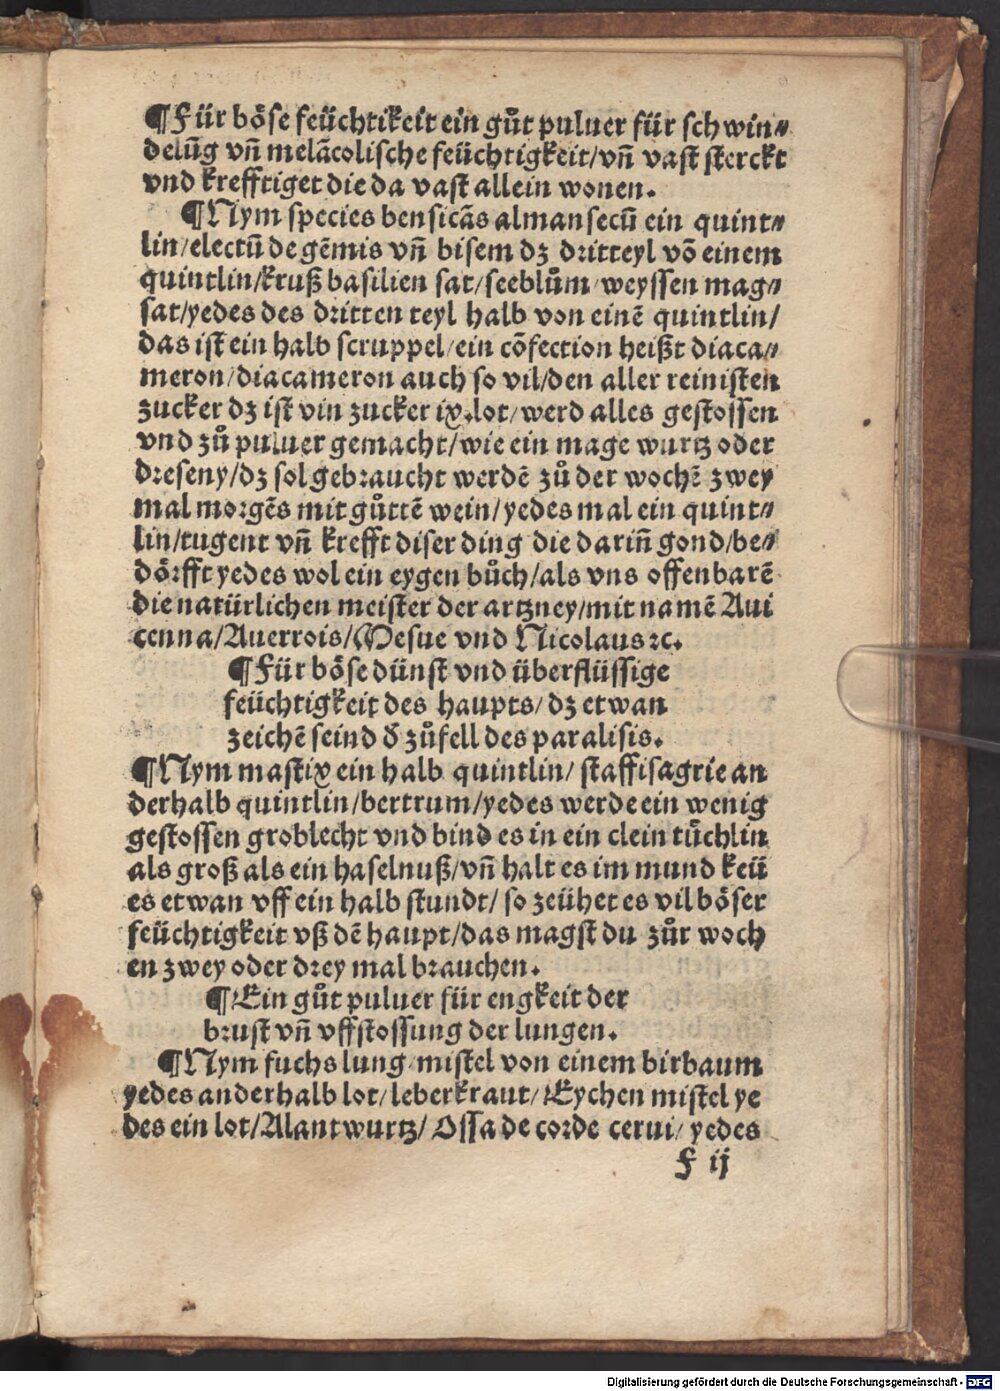 ¶Für böse feüchtikeit ein gůt puluer für schwin⸗
delũg vñ melãcolische feüchtigkeit/vñ vast sterckt
vnd krefftiget die da vast allein wonen.
¶Nym species ben sicãs almansecũ ein quint⸗
lin/electũ de gẽmis vñ bisem dz dritteyl võ einem
quintlin/kruß basilien sat/seeblům weyssen mag⸗
sat/yedes des dritten teyl halb von einẽ quintlin/
das ist ein halb scruppel/ein cõfection heißt diaca⸗
meron/diacameron auch so vil/den aller reinisten
zucker dz ist vin zucker ix.lot/werd alles gestossen
vnd zů puluer gemacht/wie ein mage wurtz oder
dreseny/dz sol gebraucht werdẽ zů der wochẽ zwey
mal morgẽs mit gůttẽ wein/yedes mal ein quint⸗
lin/tugent vñ krefft diser ding die dariñ gond/be⸗
dörfft yedes wol ein eygen bůch/als vns offenbarẽ
die natürlichen meister der artzney/mit namẽ Aui
cenna/Auerrois/Mesue vnd Nicolaus ꝛc.
¶Für böse dünst vnd überflüssige
feüchtigkeit des haupts/dz etwan
zeichẽ seind d̕ zůfell des paralisis.
¶Nym mastix ein halb quintlin/ staffisagrie an
derhalb quintlin/bertrum/yedes werde ein wenig
gestossen groblecht vnd bind es in ein clein tüchlin
als groß als ein haselnuß/vñ halt es im mund keü
es etwan vff ein halb stundt/ so zeühet es vil böser
feüchtigkeit vß dẽ haupt/das magst du zůr woch
en zwey oder drey mal brauchen.
¶Ein gůt puluer für engkeit der
brust vñ vffstossung der lungen.
¶Nym fuchs lung mistel von einem birbaum
yedes anderhalb lot/leberkraut/Eychen mistel ye
des ein lot/Alantwurtz/ Ossa de corde cerui/ yedes
F ij
Digitalisierung gefördert durch die Deutsche Forschungsgemeinschaft - DFG